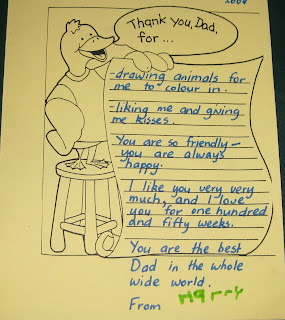 2009
Thank you, Dad,
for ...
drawing animals for
me to colour in.
liking me and giving
me kisses.
You are so friendly –
you are always
happy.
I like you very very
much, and I love
you for one hundred
and fifty weeks.
You are the best
Dad in the whole
wide world.
From Harry